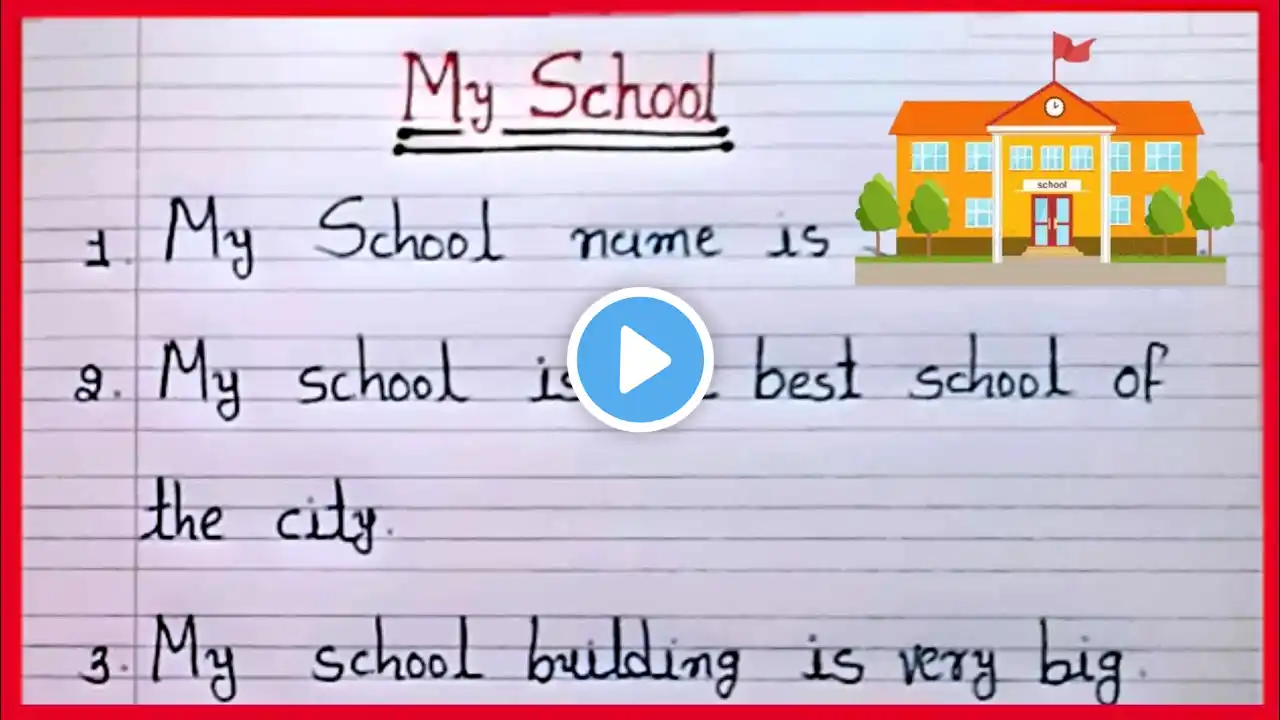 My School
school
1. My School name is
2. My school is best school of
the city.
3. My school building is very big.